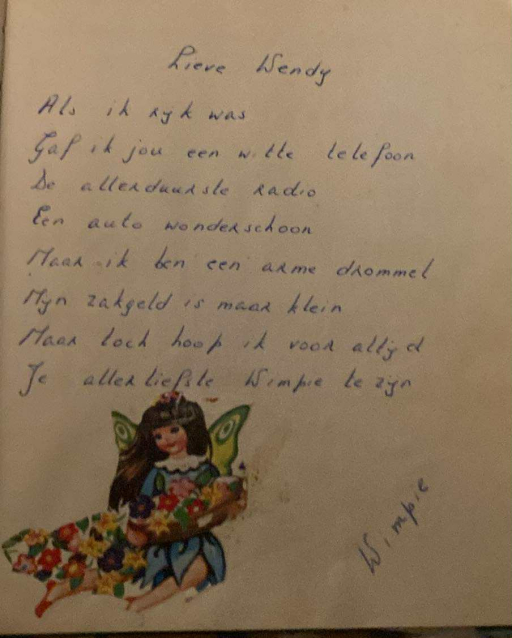 Lieve Wendy
Als ik ryk was
Gaf ik jou een witte telefoon
De allerduurste radio
Een auto wonderschoon
Maar ik ben een arme drommel
Myn zakgeld is maar klein
Maar toch hoop ik voor altyd
Je allerliefste Wimpie te zyn
Wimpie